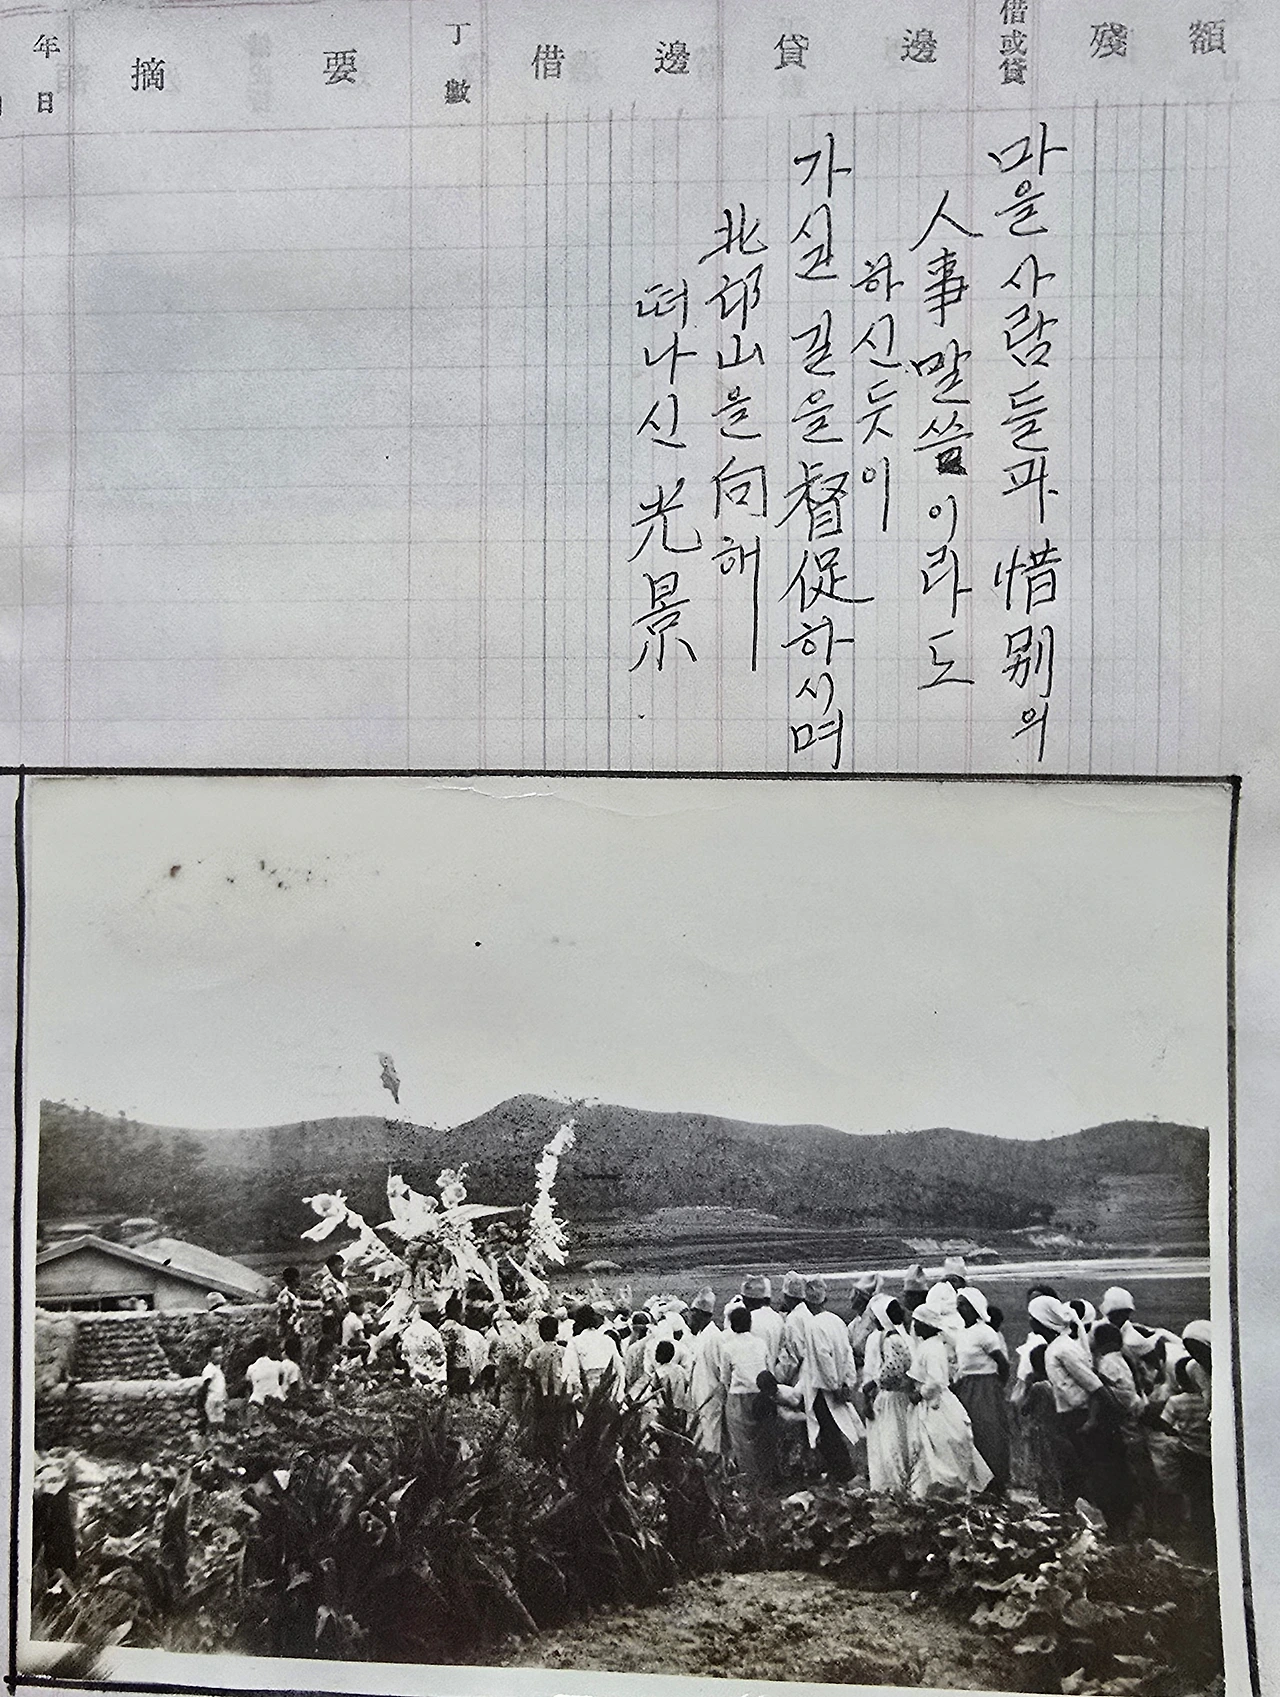 年 日 摘 要 丁數 借 邊 貸 邊 借或貸 殘 額
마을 사람들과 惜別의
人事말씀이라도
하신듯이
가실 길을 督促하시며
北邙山을 向해
떠나신 光景